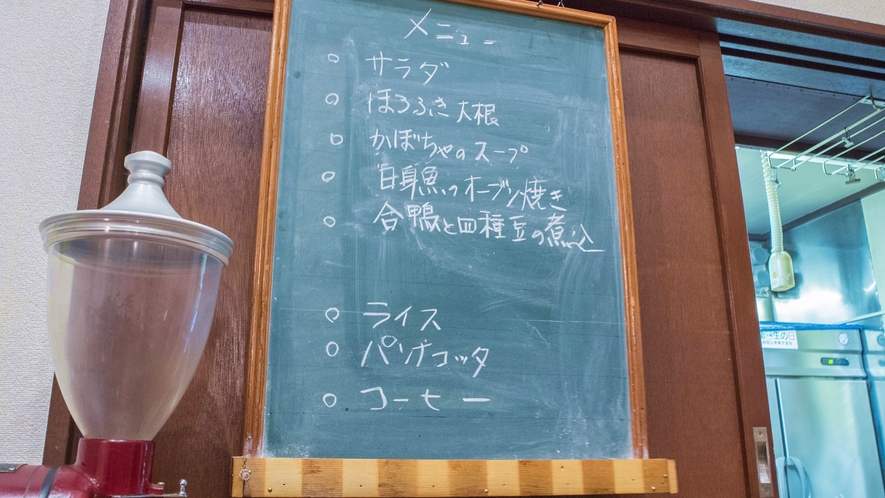 メニュー
○ サラダ
○ ほろふき大根
○ かぼちゃのスープ
○ 白身魚のオーブン焼き
○ 合鴨と四種豆の煮込
○ ライス
○ パンナコッタ
○ コーヒー
生の日